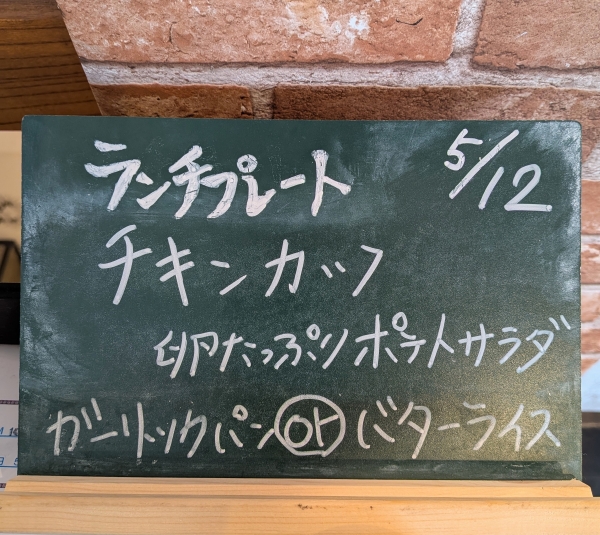 ランチプレート 5/12
チキンカツ
卵たっぷりポテトサラダ
ガーリックパン or バターライス